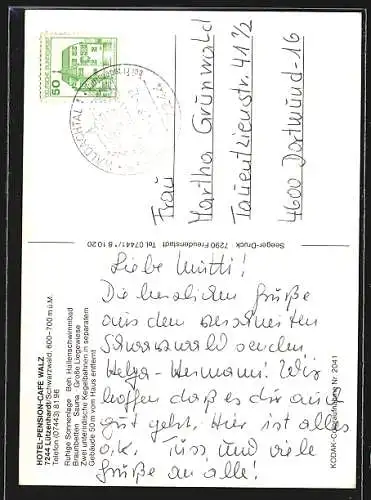 HOTEL-PENSION-CAFE WALZ
7244 Lützenhardt/Schwarzwald, 600-700 m ü.M.
Telefon (07443) 81 96
Ruhige Sonnenlage beh. Hallenschwimmbad
Braunbetten Sauna Große Liegewiese
Zwei unterirdische Kegelbahnen in separatem
Gebäude 50 m vom Haus entfernt
Liebe Mutti!
Die herzlichen Grüße
aus dem
Schwarzwald senden
Helga - Hermann! Wir
hoffen daß es dir auch
gut geht. Hier ist alles
o.k. Tüss, und viele
Grüße an alle!
Seeger-Druck 7290 Freudenstadt Tel. 07441/81020
KODAK-Color Nr. 2041
DEUTSCHE BUNDESPOST
50
WALDACHTAL 1
Frau
Martha Grünwald
Tauentzienstr. 41 1/2
4600 Dortmund-16